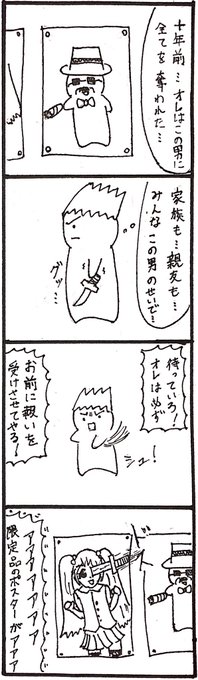 十年前…オレはこの男に
全てを奪われた…
家族も…親友も…
みんなこの男のせいで…
グッ…
待っていろ！
オレは必ず
お前に報いを
受けさせてやる！
シュ！
アアアアアアアア
限定品のポスターがアアア